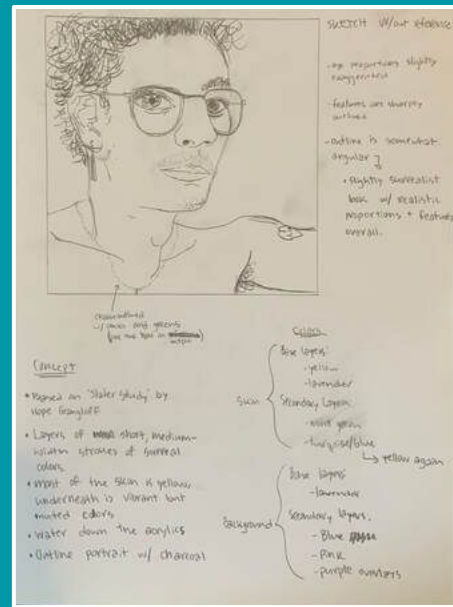 SKETCH W/out reference
- eye proportions slightly
exaggerated
- features are sharply
outlined
- outline is somewhat
angular
• slightly surrealist
look w/ realistic
proportions + features
overall.
outlined
w/ and greens
Concept
• Based on "Slater Study" by
Hope Gangloff
• Layers of short, medium-
width strokes of surreal
colors
• most of the skin is yellow,
underneath is vibrant but
muted colors
• water down the acrylics
• Outline portrait w/ charcoal
Colors
Skin
Base layers:
- yellow
- lavender
Secondary Layers:
- mint green
- turquoise/blue
↳ yellow again
Background
Base layers
- lavender
Secondary layers:
- Blue
- Pink
- purple overlayers